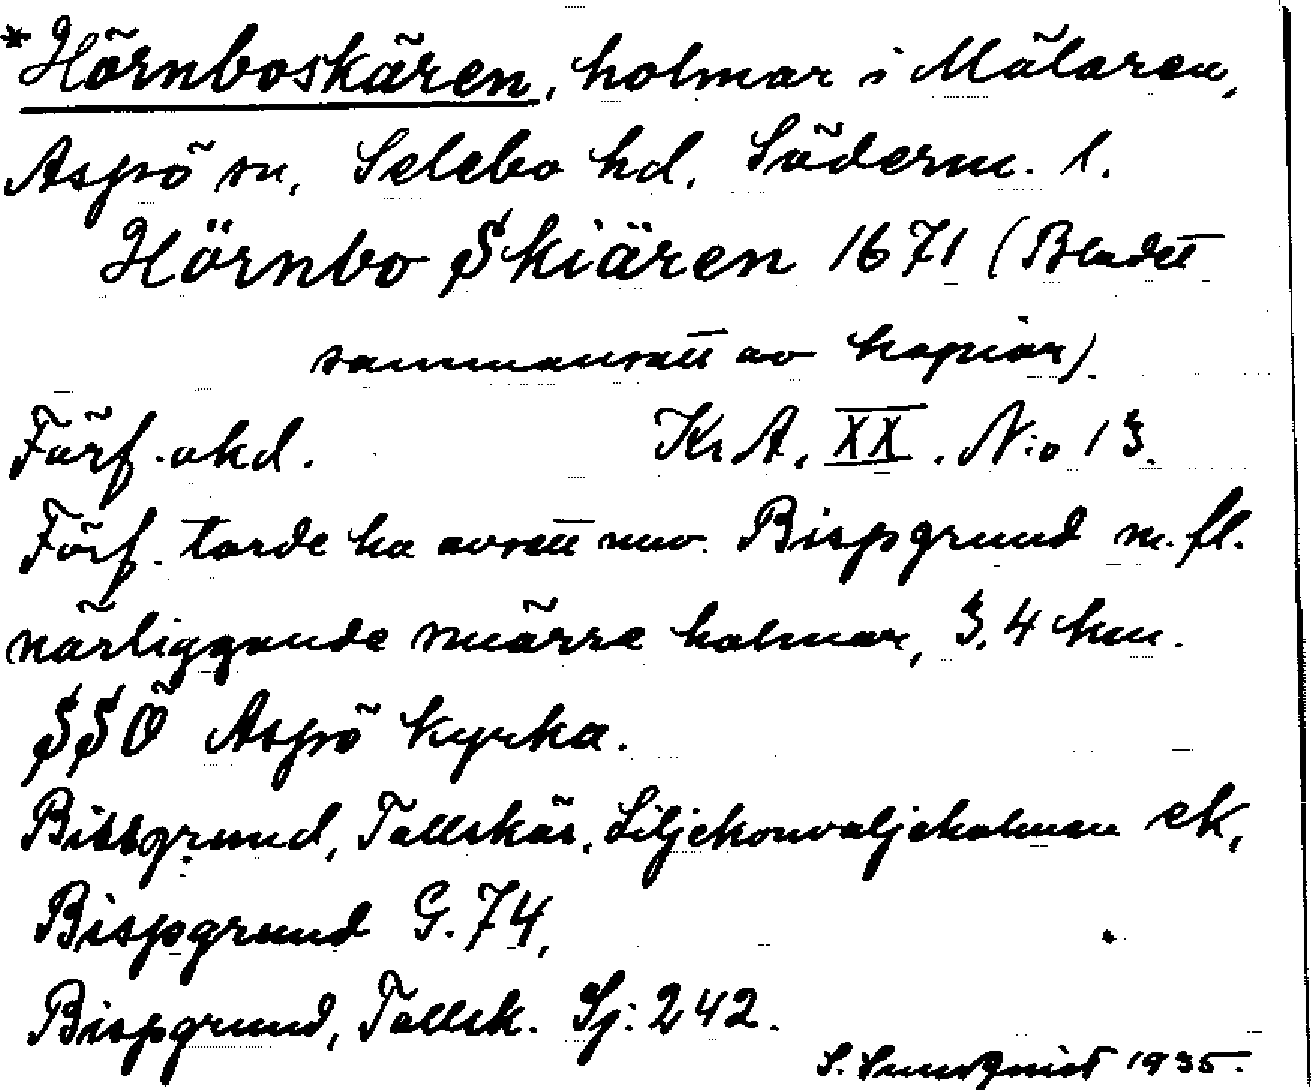 *Hörnboskären, holmar i Mälaren,
Aspö sn, Selebo hd, Söderm. l.
Hörnbo Skiären 1671 (Bladet
sammansatt av kopior)
Förf. okd. Kr.A. XX. N:o 13.
Förf. torde ha avsett nuv. Bispgrund m. fl.
närliggande smärre holmar, 3,4 km.
SSÖ Aspö kyrka.
Bissgrund, Tallskär, Liljekonvaljeholmen ek,
Bispgrund G. 74,
Bispgrund, Tallsk. Sj: 242.
S. Sundqvist 1935.